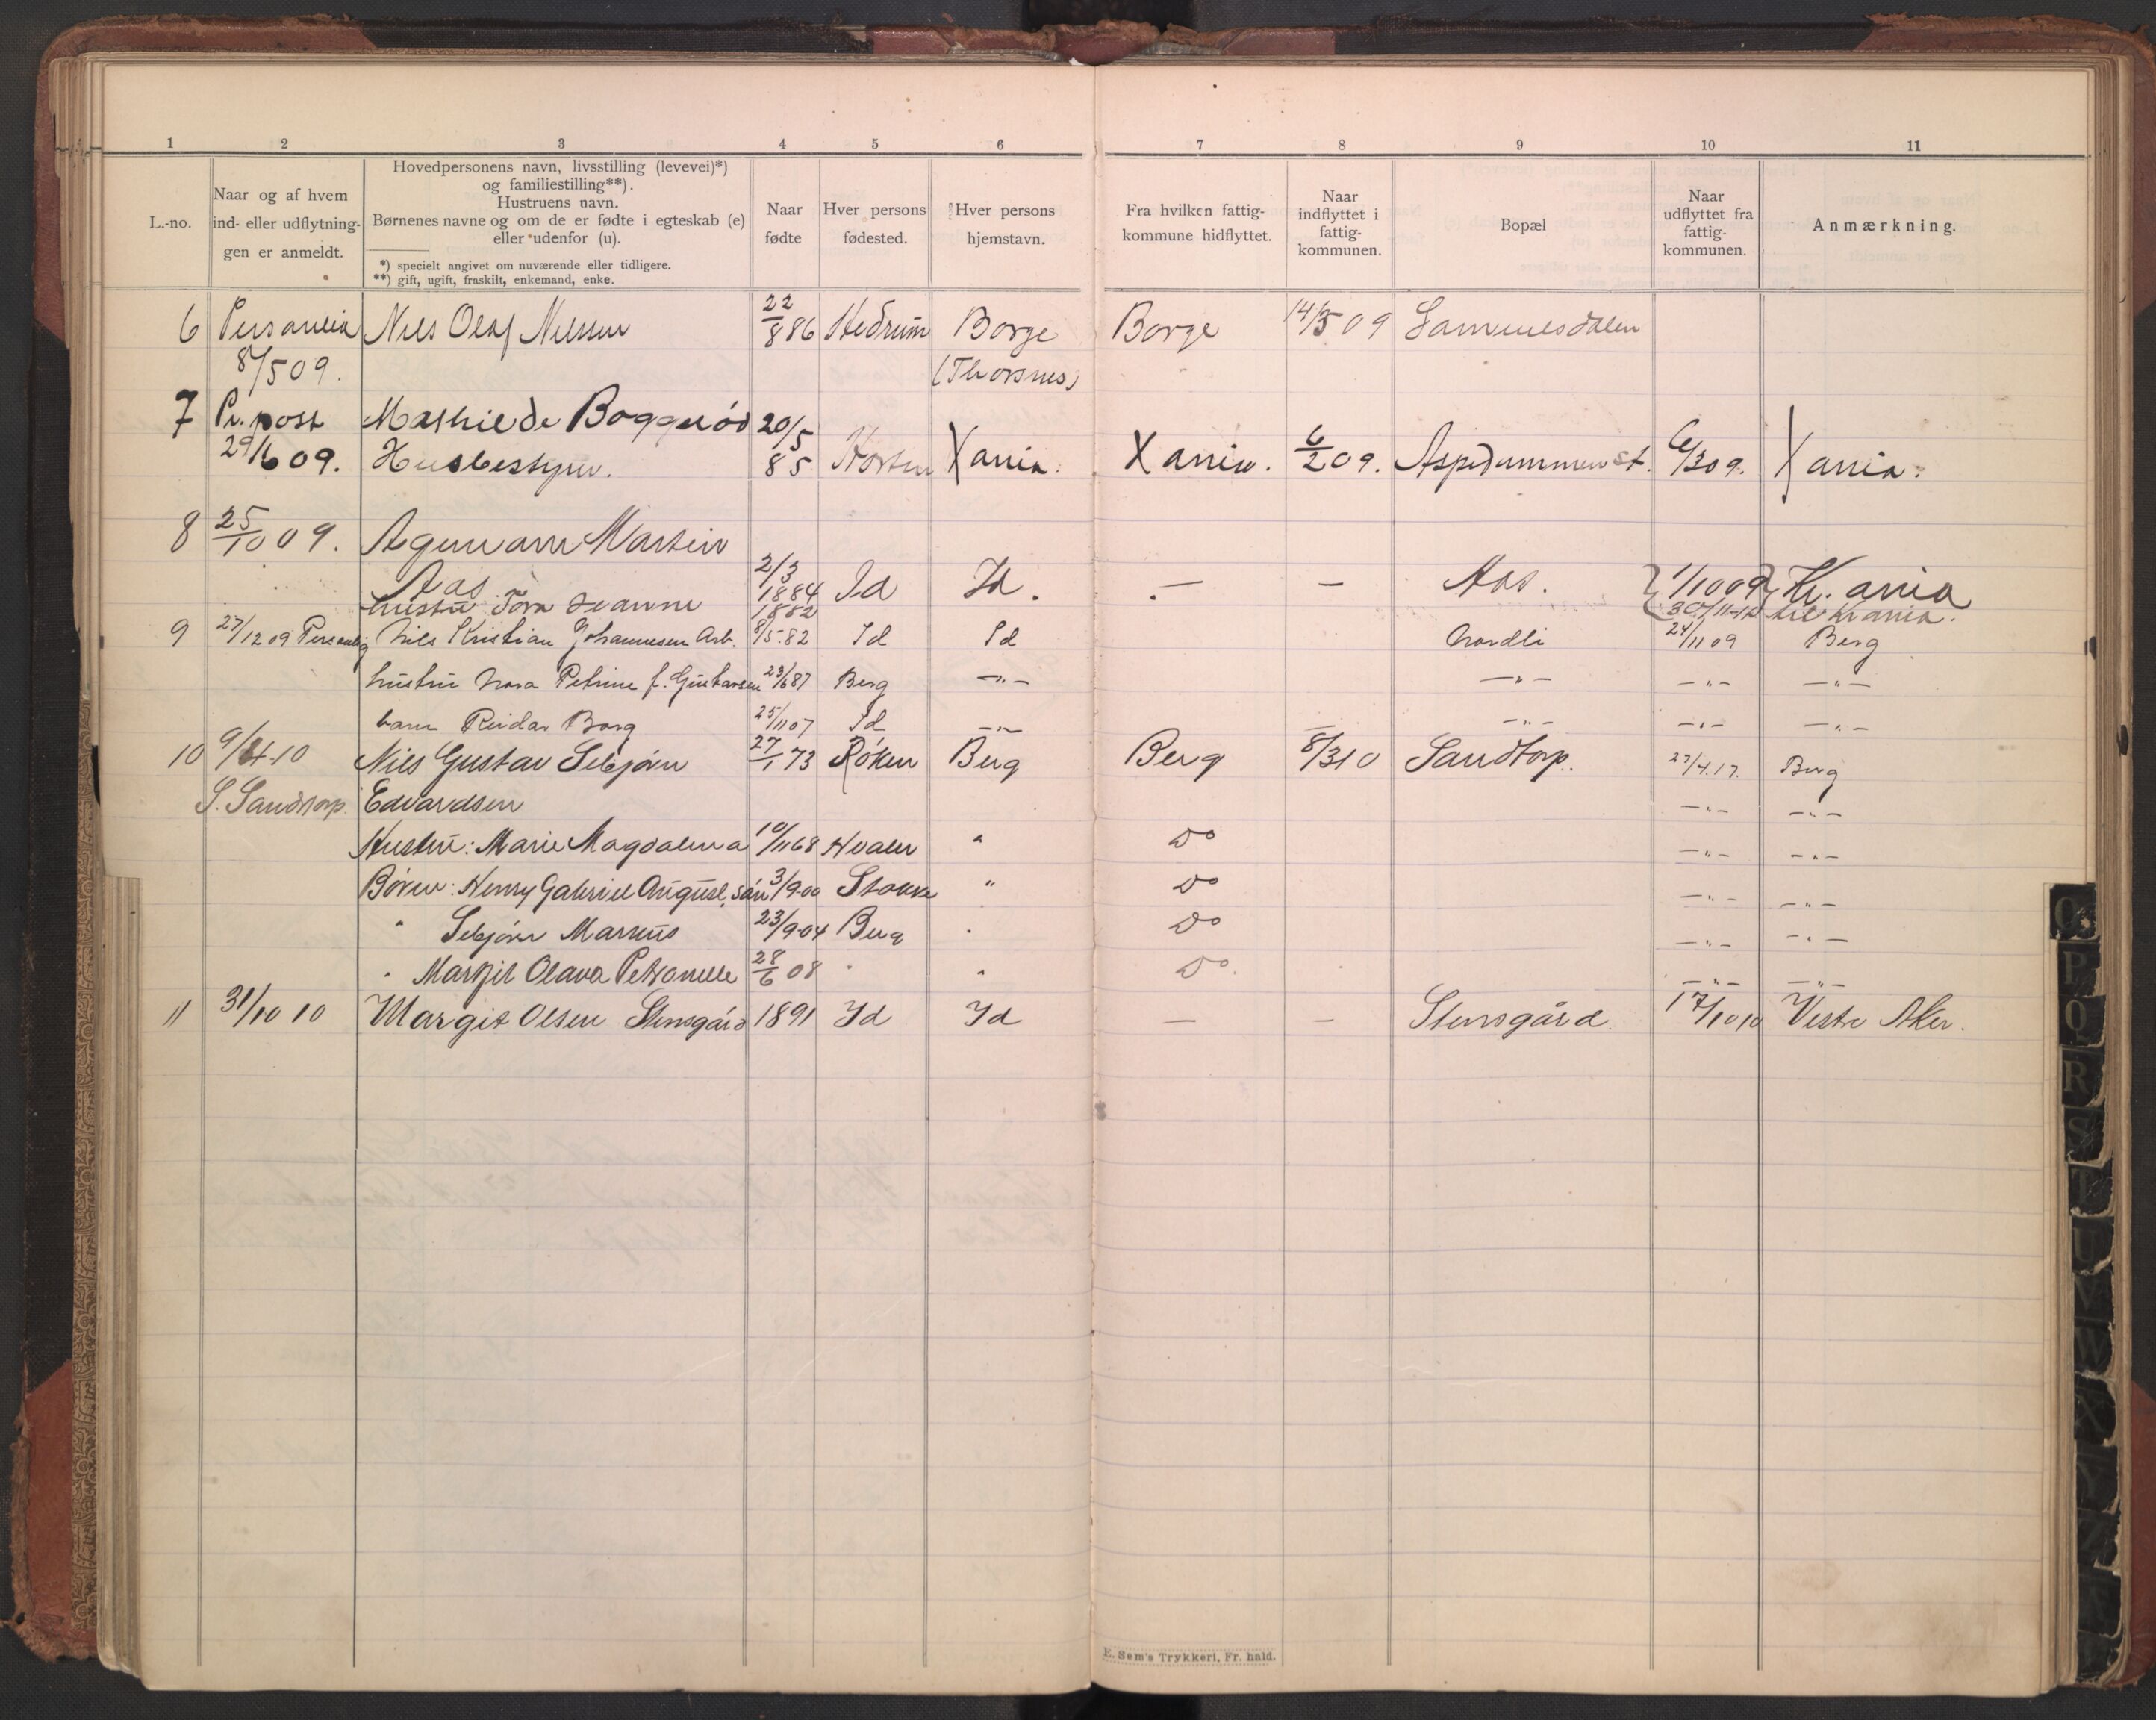 1 2 3 4 5 6 7 8 9 10 11
L.-no.
Naar og af hvem
ind- eller udflytnin-
gen er anmeldt.
Hovedpersonens navn, livsstilling (levevei)*)
og familiestilling**).
Hustruens navn.
Børnenes navne og om de er fødte i egteskab (e)
eller udenfor (u).
*) specielt angivet om nuværende eller tidligere.
**) gift, ugift, fraskilt, enkemand, enke.
Naar
fødte
Hver persons
fødested.
Hver persons
hjemstavn.
Fra hvilken fattig-
kommune hidflyttet.
Naar
indflyttet i
fattig-
kommunen.
Bopæl
Naar
udflyttet fra
fattig-
kommunen.
Anmærkning.
6 Nils Olaf Nilssen 22/8 86 Hedrum Borge Borge 14/5 09 Samuelsdalen
8/5 09. (Thorsnes)
7 Pr. post Mathilde 20/5
29/6 09. Husbestyr. 85 Horten Xania. Xania. 6/2 09. Aspedammen st. 6/3 09. Xania.
8 25/10 09. Martin
Aas 2/3 1884 Id Id. — — Aas. 1/10 09 Kr.ania
hustru Tora 1882 30/11-12 til Krania.
9 27/12 09 Personlig Nils Kristian Johannesen Arb. 8/5.82 Id Id Nordli 24/11 09 Berg
hustru Nora Petrine f. Gustavsen 23/6 87 Berg —"— —"— —"— —"—
barn Reidar Borg 25/11 07 Id —"— —"— —"— —"—
10 9/4-10 Nils Gustav Sebjørn 27/1 73 Røken Berg Berg 8/3 10 Sandtorp. 27/4.17. Berg
S. Sandtorp. Edvardsen —"— —"—
Hustru: Marie Magdalena 10/11 68 Hvaler " Do —"— —"—
Børn: Henry Gabriel August, søn 3/9-00 Stokke " Do —"— —"—
" Sebjørn Marius 23/9-04 Berg " Do —"— —"—
" Margit Olava Petronelle 28/6 08 " " Do. —"— —"—
11 31/10 10 Margit Olsen Stensgård 1891 Id Id — — Stensgård. 17/10 10 Vestre Aker.
E. Sem's Trykkeri, Fr. hald.
O
P
Q
R
S
T
U
V
W
X
Y
Z